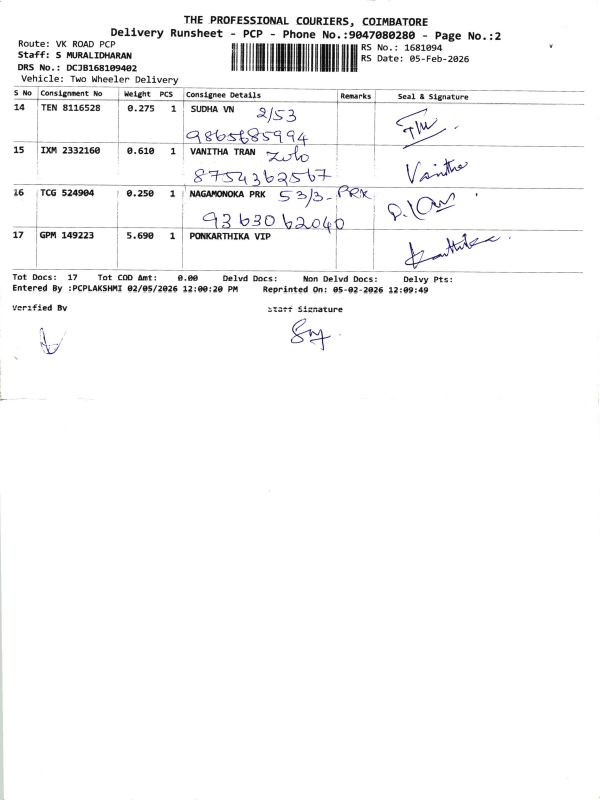 THE PROFESSIONAL COURIERS, COIMBATORE
Delivery Runsheet - PCP - Phone No.:9047080280 - Page No.:2
Route: VK ROAD PCP
RS No.: 1681094
Staff: S MURALIDHARAN
RS Date: 05-Feb-2026
DRS No.: DCJB168109402
Vehicle: Two Wheeler Delivery
S No Consignment No Weight PCS Consignee Details Remarks Seal & Signature
14 TEN 8116528 0.275 1 SUDHA VN 2/53
9865685994
15 IXM 2332160 0.610 1 VANITHA TRAN Vanitha
8754362567
16 TCG 524904 0.250 1 NAGAMONOKA PRK 53/3-PRK
9363062040
17 GPM 149223 5.690 1 PONKARTHIKA VIP Karthika
Tot Docs: 17 Tot COD Amt: 0.00 Delvd Docs: Non Delvd Docs: Delvy Pts:
Entered By :PCPLAKSHMI 02/05/2026 12:00:20 PM Reprinted On: 05-02-2026 12:09:49
Verified By Staff Signature